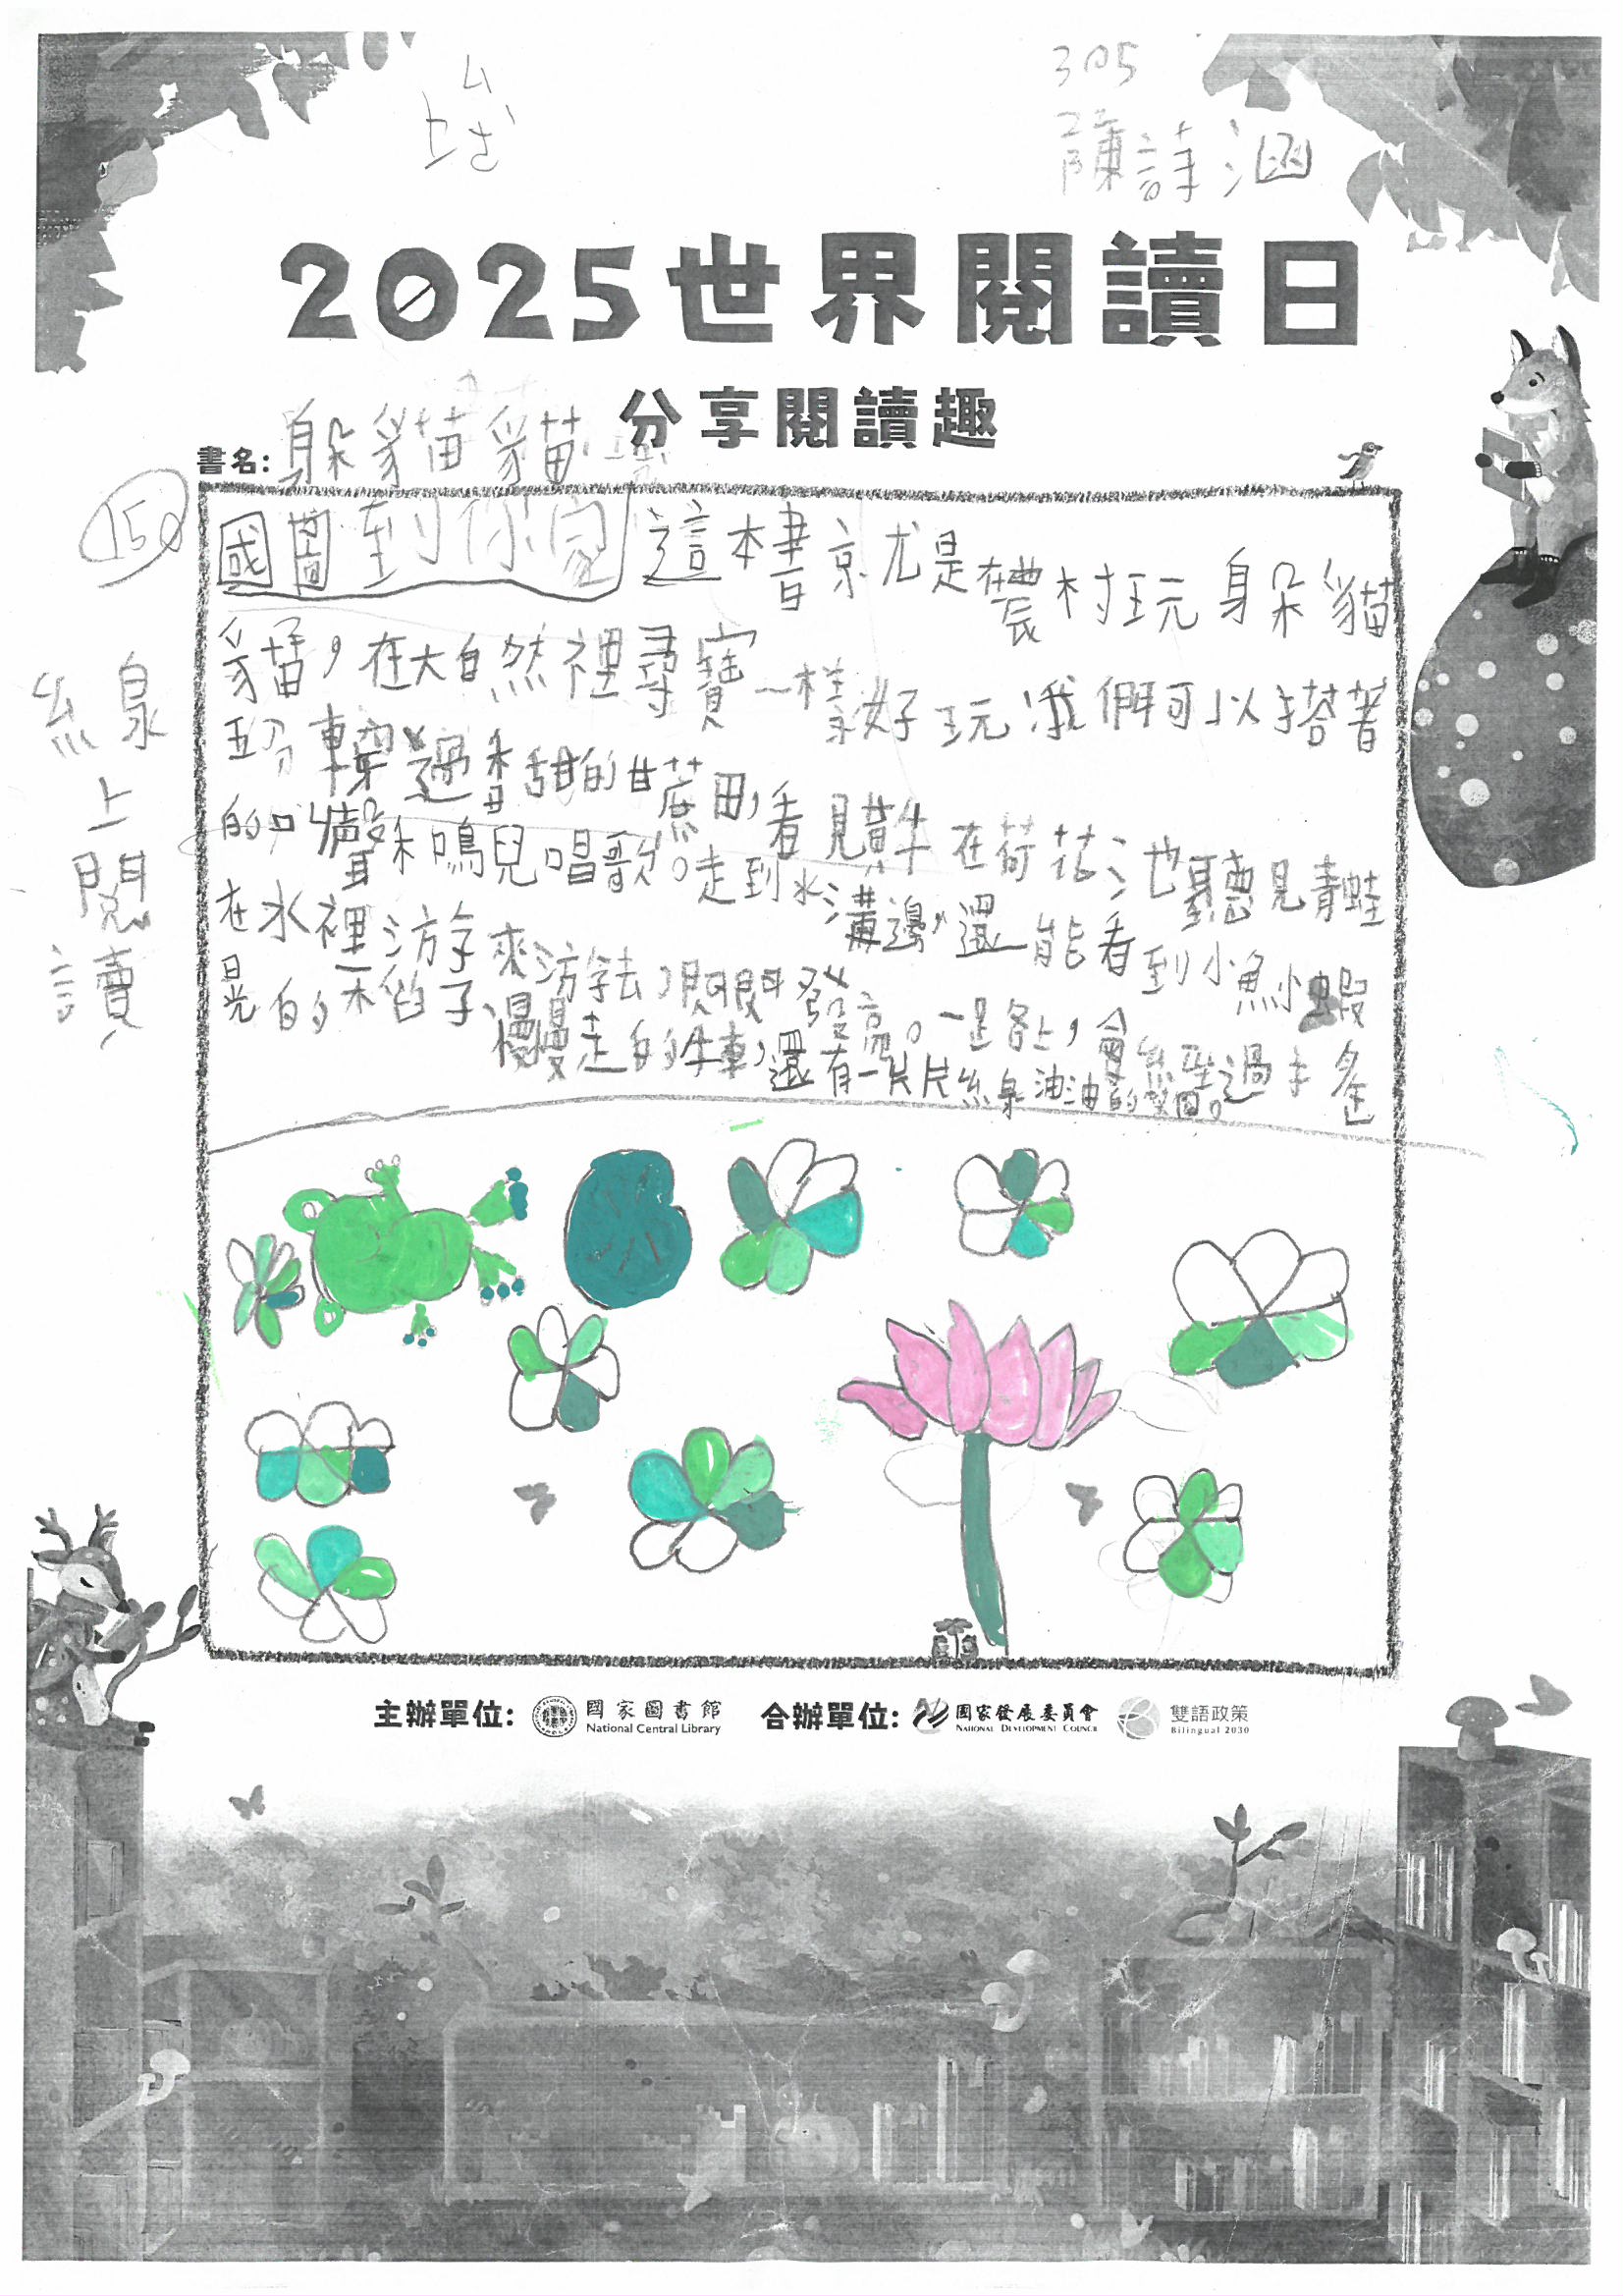 305
陳詩涵
2025世界閱讀日
分享閱讀趣
書名: 躲貓貓
150
線上閱讀
國圖到你家 這本書京尤是在農村玩躲貓
貓，在大自然裡尋寶一樣好玩。我們可以搭著
穿過香甜的甘蔗田，看見黃牛在荷花池聽見青蛙
的叫聲和鳴兒唱歌。走到水溝邊，還能看到小魚小蝦
在水裡游來游去，閃閃發亮。一路上，會經過
晃的稻子、慢慢走的牛車，還有一片片綠油油的
主辦單位: 國家圖書館 National Central Library 合辦單位: 國家發展委員會 NATIONAL DEVELOPMENT COUNCIL 雙語政策 Bilingual 2030